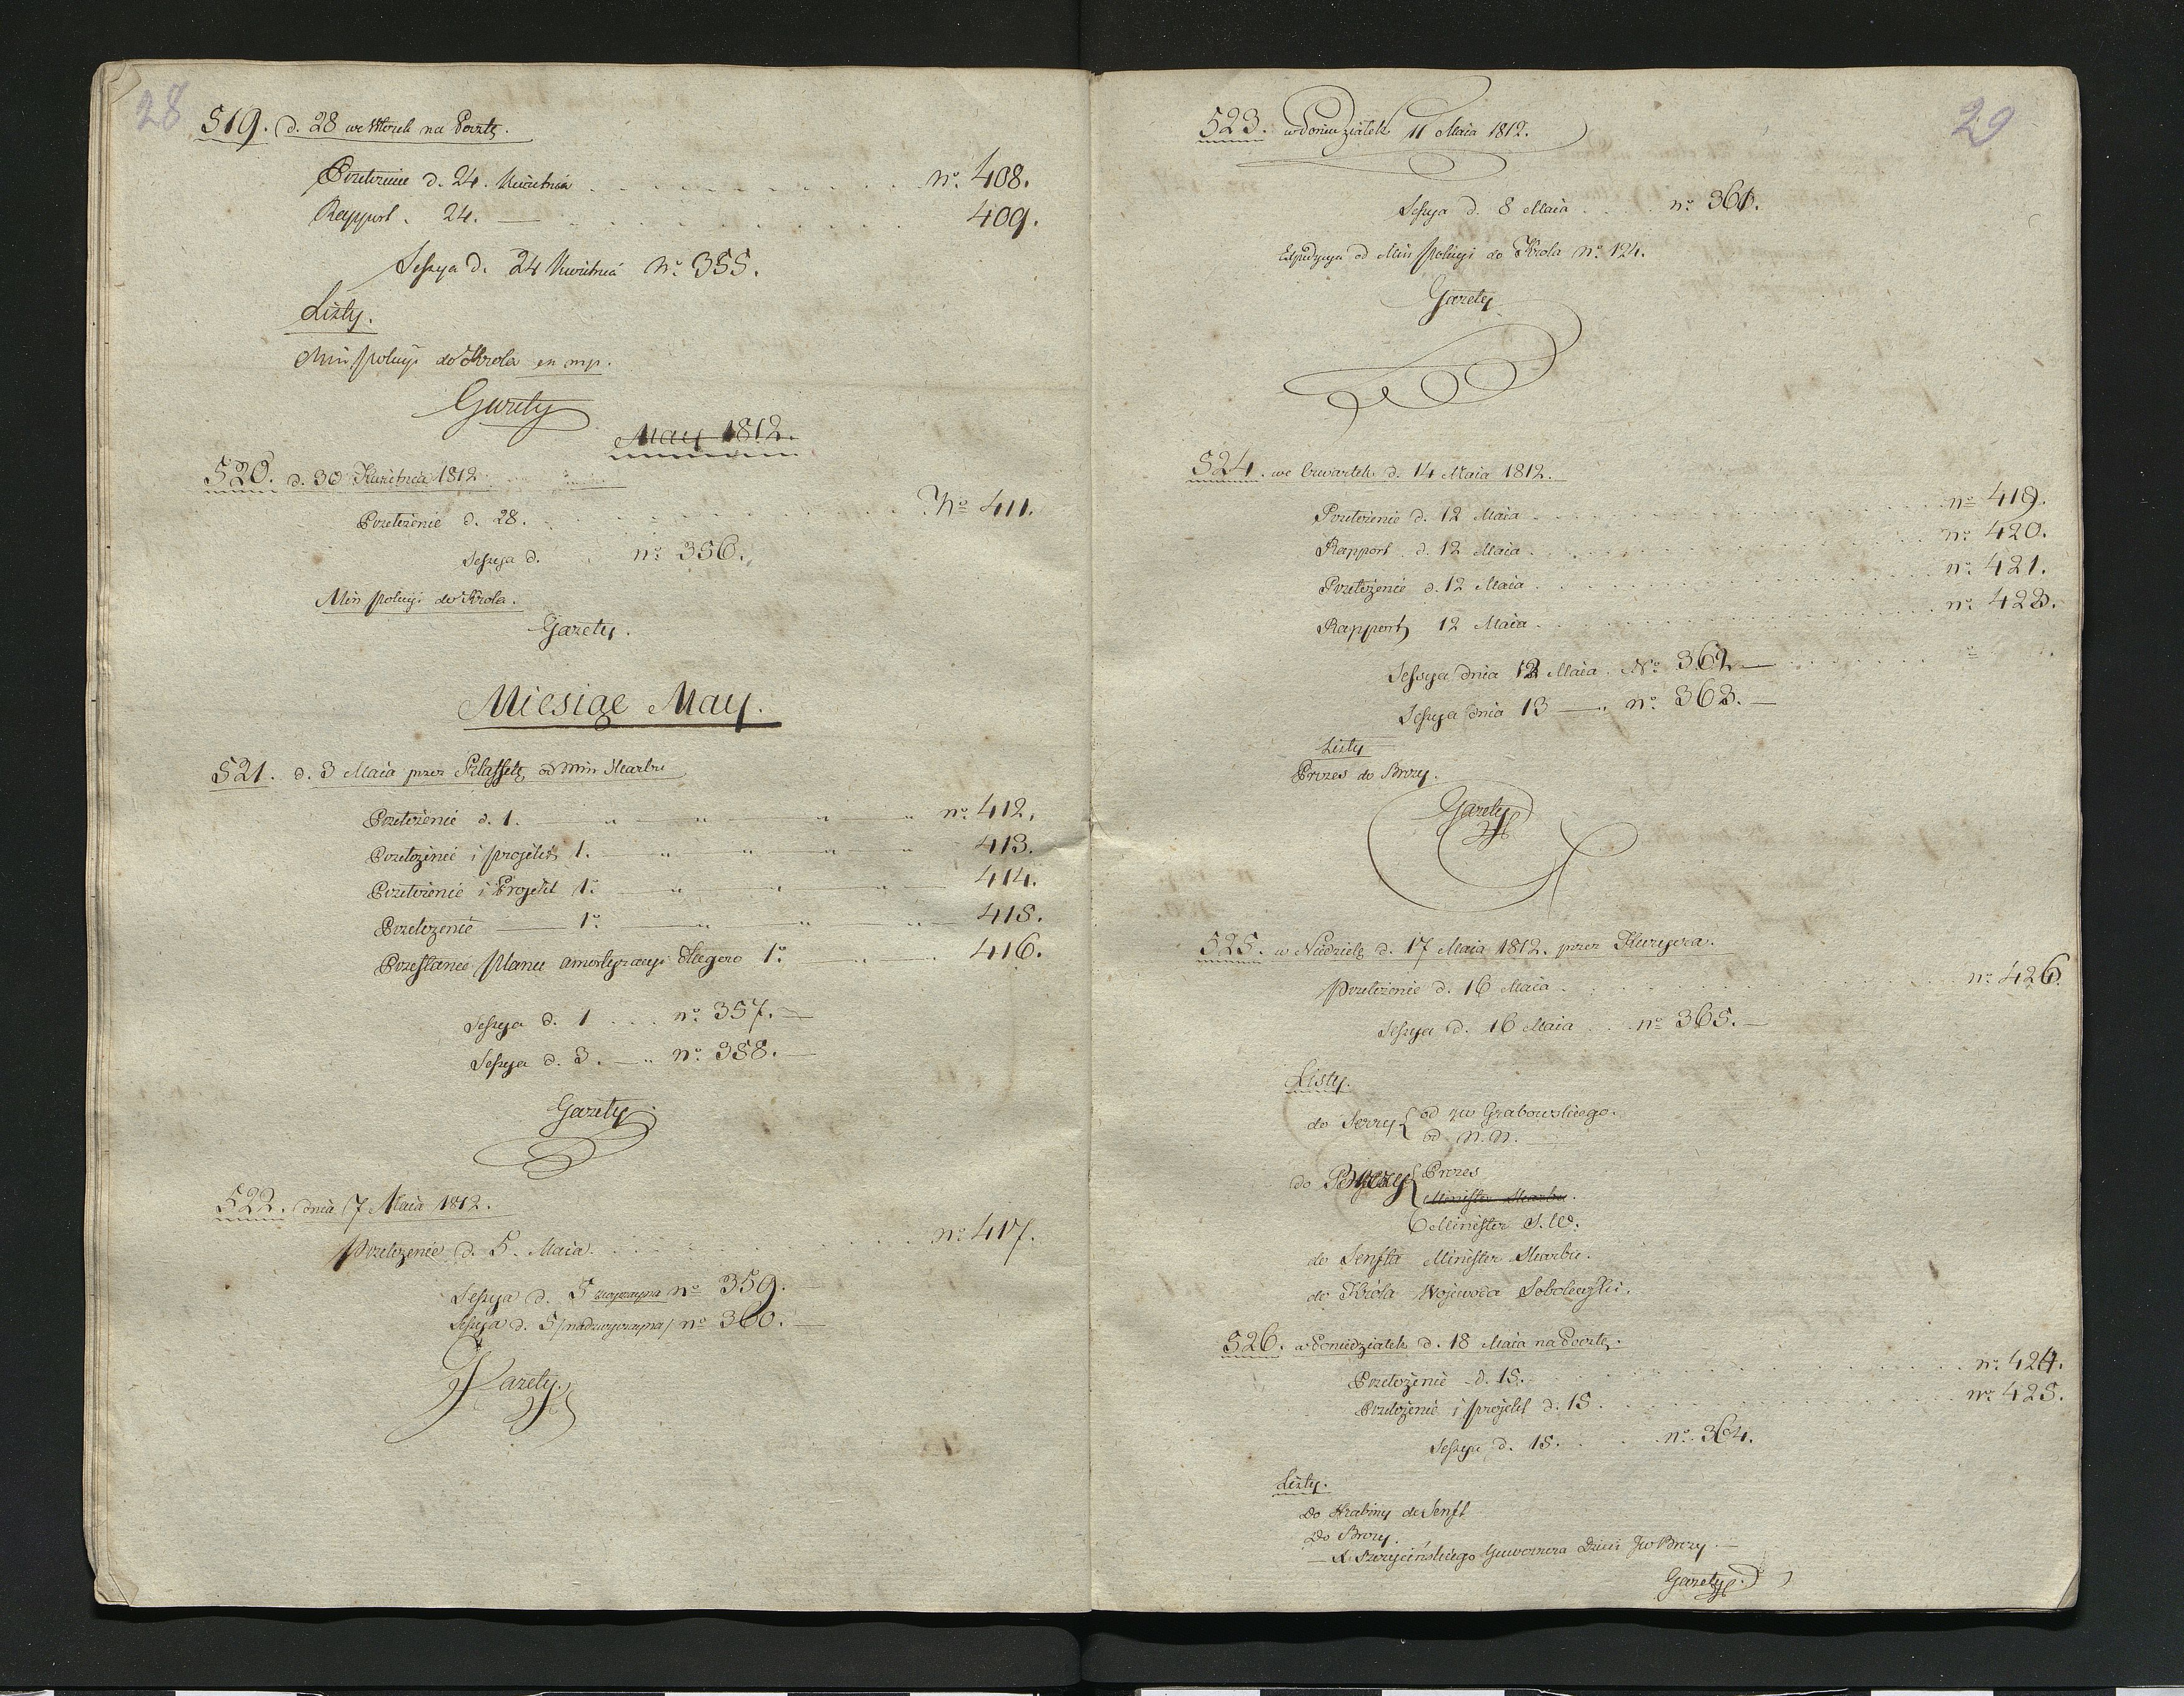 28
519. d. 28 we Wtorek na Pocztę.
Przełożenie d. 24. Kwietnia . . . . . . . . . . n° 408.
Rapport . 24. — . . . . . . . . . . 409.
Sessya d. 24 Kwietnia N° 355.
Listy.
Min Policyi do Krola en mp.
Gazety
May 1812.
520. d. 30 Kwietnia 1812
Przełożenie d. 28. . . . . . . . . . N° 411.
Sessya d. . . n° 356.
Min Policyi do Krola.
Gazety.
Miesiąc May.
521. d. 3 Maia przez Sztaffetę od Min Skarbu
Przełożenie d. 1. — " — " — " — " n° 412.
Przełożenie i projekt 1. — " — " — " — " — 413.
Przełożenie i Projekt 1° — " — " — " — 414.
Przełożenie — 1° — " — " — " — 415.
Przesłanie Planu amortyzacyi długów 1° — " — 416.
Sessya d. 1 . . . n° 357. —
Sessya d. 3. — " n° 358. —
Gazety.
522. dnia 7 Maia 1812.
Przełożenie d. 5. Maia. . . . . . . . . . n° 417.
Sessya d. 5 zwyczayna n° 359. —
Sessya d. 5 /nadzwyczayna/ n° 360. —
Gazety.
29
523. w Poniedziałek 11 Maia 1812.
Sessya d. 8 Maia . . . . n° 361.
Expedycya od Min Policyi do Krola N° 124.
Gazety
524. we Czwartek d. 14 Maia 1812.
Przełożenie d. 12 Maia . . . . . . . . . . n° 419.
Rapport . d. 12 Maia . . . . . . . . . . n° 420.
Przełożenie d. 12 Maia . . . . . . . . . . n° 421.
Rapport 12 Maia . . . . . . . . . . n° 422.
Sessya dnia 12 Maia . N° 362 —
Sessya dnia 13 — " n° 363. —
Listy
Prezes do Brezy.
Gazety
525. w Niedzielę d. 17 Maia 1812. przez Kuryera.
Przełożenie d. 16 Maia . . . . . . . . . . n° 426
Sessya d. 16 Maia . . n° 365. —
Listy.
do Serry { od JW Grabowskiego.
od N.N. —
do Brezy { Prezes
Minister Skarbu.
Minister S.W.
do Senffta Minister Skarbu.
do Króla Wojewoda Sobolewski.
526. w Poniedziałek d. 18 Maia na Pocztę.
Przełożenie d. 15. . . . . . . . . . n° 424.
Przełożenie i projekt d. 15 . . . . . . . . . . n° 425.
Sessya d. 15. . . . n° 364.
Listy.
Do Hrabiny de Senft
Do Brezy.
Guwernera Dzieci JW Brezy. —
Gazety.